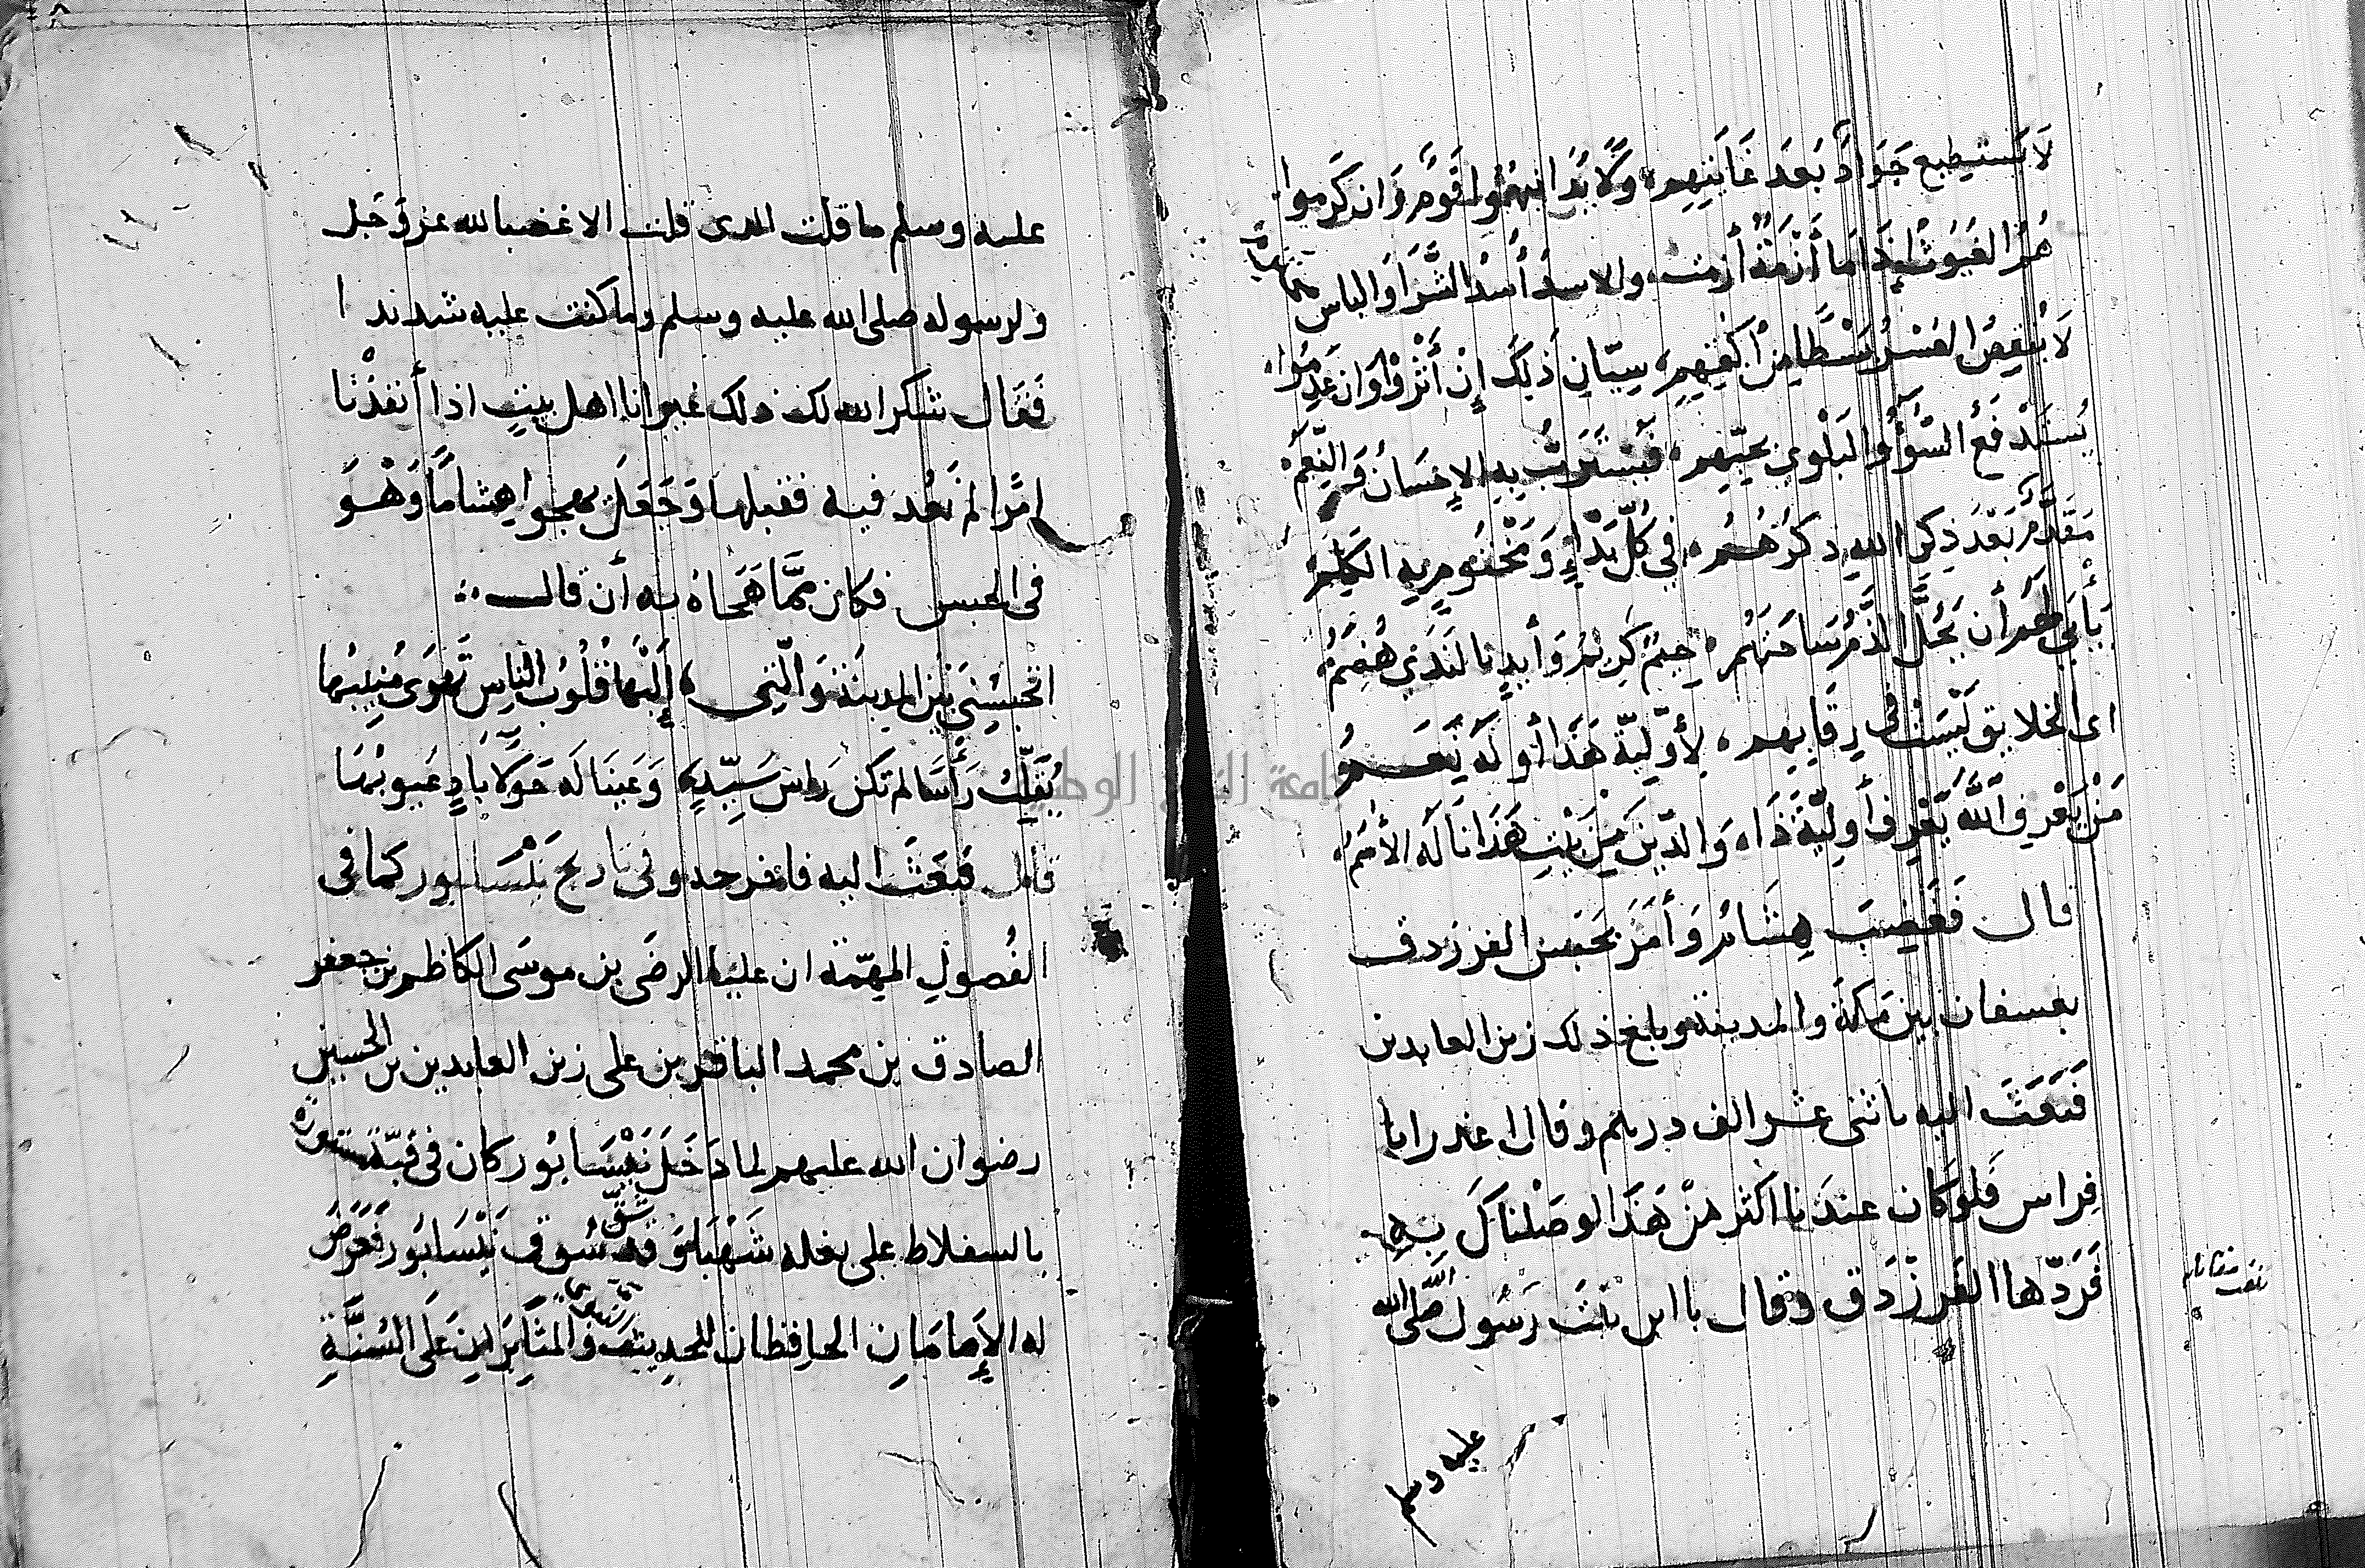 لَا يَسْتَطِيع جَوَادٌ بَعْدَ غَايَتِهِم وَلَا يُدَانِيهُمُوا قَوْمٌ وَان كَرِمُوا
هُمُ الغُيُوثُ إِذَا مَا أَزْمَةٌ أزمت والاسد أُسْدُ الشَّرَا وَالباس محتدم
لَا يُنْقِصُ العُسْرُ بَسْطًا مِنْ أَكُفِّهِم سِيّانِ ذَلِكَ إِنْ أَثْرَوْا وَان عَدِمُوا
يُسْتَدْفَعُ السُّوْءُ وَالبَلْوَى بحبِّهِم وَيُسْتَرَبُّ بِهِ الإِحْسَانُ وَالنِّعَمُ
مُقَدَّمٌ بَعْدَ ذِكْرِ اللهِ ذِكْرُهُم فِي كُلِّ بَدْءٍ وَمَخْتُومٍ بِهِ الكَلِمُ
يَأْبَى لَهُم أَن يَحُلَّ الذَّمُّ سَاحَتَهُم خِيمٌ كَرِيمٌ وَأَيدٍ بِالنَّدَى هُضُمُ
اى الخلايق لَيْسَتْ فى رِقَابِهِم لِأَوَّلِيَّةِ هَذَا أَو لَهُ نِعَمُ
مَنْ يَعْرِفِ اللهَ يَعْرِف أَوَلِيَّةَ ذَا وَالدِّينَ مِنْ بَيْتِ هَذَا نَالَهُ الأُمَمُ
قال فَغَضِبَ هِشَامُ وَأَمَرَ بحَبْسِ الفرزدق
بعسفان بين مَكةَ والمدينة وبلغ ذلك زين العابدين
فَبَعَثَ اليه باثنى عشر الف درهم وقال اعذر ابا
فِراس فَلَو كَان عندَنا اكثر مِنْ هَذَا لوصَلْناكَ بِهِ
فَرَدّها الفَرَزْدَق وقال يا ابن بنت رَسُول الله صَلى الله
عليه وسلم
عليه وسلم ما قلت الذى قلت الا غضبا لله عز وَجَل
ولرسوله صلى الله عليه وسلم وما كنت عليه شديدا
فَقَال شكر الله لك ذلك غير انا اهل بيتٍ اذا أنفذْنا
امْرًا لم نَعُد فيه فقبلها وَجَعَلَ يهجوا هِشامًا وَهْوَ
فى الحبس فكان مِمَّا هَجَاهُ به أن قال
اتحبسُنِي بَيْن المدينَة وَالَّتِي إِلَيْهَا قُلُوبُ النَّاسِ تَهْوَى مُنِيبُهَا
يُقَلِّبُ رَأْسًا لم تكن رَاس سَيِّدٍ وَعَينًا لَه حَوْلَا بَادٍ عُيُوبُهَا
قال فَبَعَثَ اليه فاخرجه وفى تاريخ نَيْسَابور كما فى
الفُصولِ المهمّة ان عليا الرضَى بن موسَى الكاظم بن جعفر
الصادق بن محمد الباقر بن على زين العابدين بن الحسين
رضوان الله عليهم لما دَخَلَ نَيْسَابُور كان فى قبّة مستورة
بالسقلاط على بغله شَهْبَا وَقَد شَقَّ سُوقَ نَيْسَابُور فَعَرَضَ
له الإِمَامَانِ الحافِظان للحديث وَالمثَابِرَانِ عَلَى السُّنَّةِ